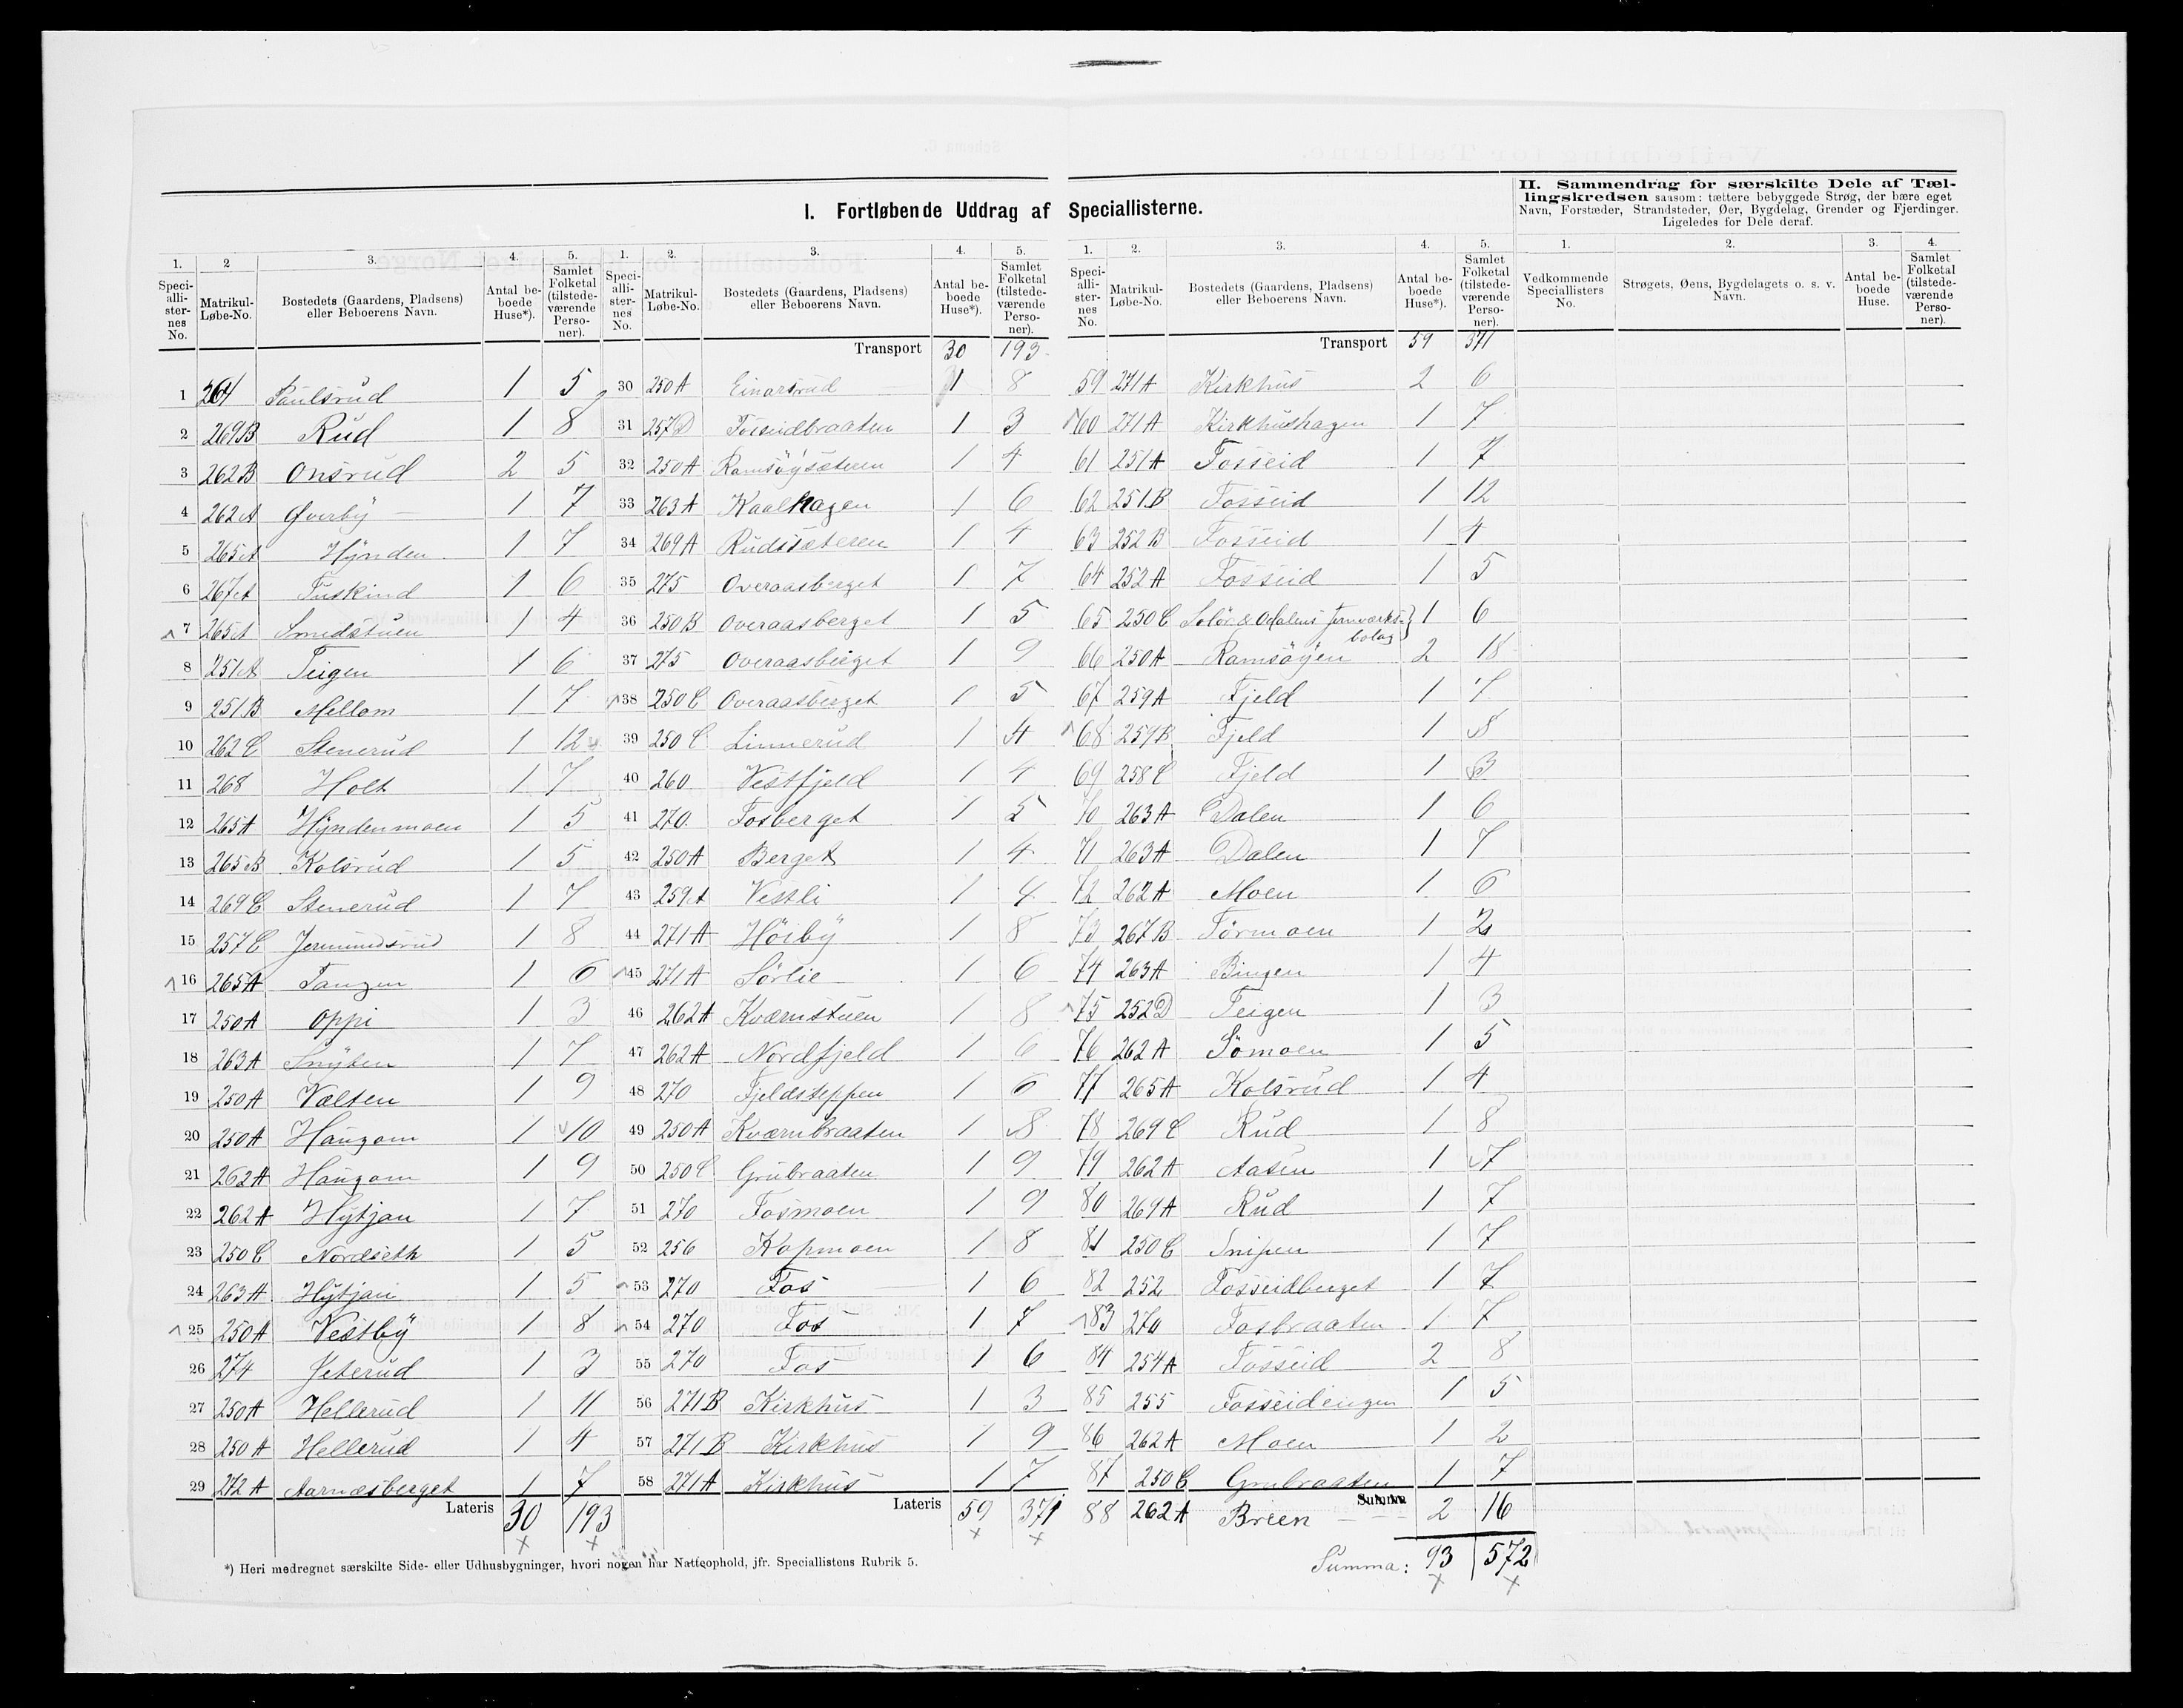 I. Fortløbende Uddrag af Speciallisterne.
II. Sammendrag for særskilte Dele af Tæl-
lingskredsen saasom: tættere bebyggede Strøg, der bære eget
Navn, Forstæder, Strandsteder, Øer, Bygdelag, Grender og Fjerdinger.
Ligeledes for Dele deraf.
1. 2 3. 4. 5. 1. 2. 3. 4. 5. 1. 2. 3. 4. 5. 1. 2. 3. 4.
Speci-alli-ster-nes No. Matrikul-Løbe-No. Bostedets (Gaardens, Pladsens) eller Beboerens Navn. Antal be-boede Huse*). Samlet Folketal (tilstede-værende Perso-ner).
Speci-alli-ster-nes No. Matrikul-Løbe-No. Bostedets (Gaardens, Pladsens) eller Beboerens Navn. Antal be-boede Huse*). Samlet Folketal (tilstede-værende Perso-ner).
Speci-alli-ster-nes No. Matrikul-Løbe-No. Bostedets (Gaardens, Pladsens) eller Beboerens Navn. Antal be-boede Huse*). Samlet Folketal (tilstede-værende Perso-ner).
Vedkommende Speciallisters No. Strøgets, Øens, Bygdelagets o. s. v. Navn. Antal be-boede Huse. Samlet Folketal (tilstede-værende Perso-ner).
1 264 Paulsrud 1 5
2 269B Rud 1 8
3 262B Onsrud 2 5
4 262A Øverby 1 7
5 265A Hynden 1 7
6 267A Tuskind 1 6
7 265A Smedstuen 1 4
8 251A Teigen 1 6
9 251B Mellom 1 7
10 262C Stenerud 1 12
11 268 Holt 1 7
12 265A Hyndenmoen 1 5
13 265B Kolsrud 1 5
14 269C Stenerud 1 7
15 257C Jermundsrud 1 8
16 265A Tangen 1 6
17 250A Oppi 1 3
18 263A Snyben 1 7
19 250A Vælten 1 9
20 250A Haugom 1 10
21 262A Haugom 1 9
22 262A Hytjan 1 7
23 250C Nordseth 1 5
24 263A Hytjan 1 5
25 250A Vestby 1 8
26 274 Jeterud 1 3
27 250A Hellerud 1 11
28 250A Hellerud 1 4
29 272A Aarnæsberget 1 7
Lateris 30 193
Transport 30 193
30 250A Einarsrud 1 8
31 257D Fosseidbraaten 1 3
32 250A Ramsöysæteren 1 4
33 263A Kaalhagen 1 6
34 269A Rudssæteren 1 4
35 275 Overaasberget 1 7
36 250B Overaasberget 1 5
37 275 Overaasberget 1 9
38 250C Overaasberget 1 5
39 250C Linnerud 1 4
40 260 Vestfjeld 1 4
41 270 Fosberget 1 5
42 250A Berget 1 4
43 259A Vestli 1 4
44 271A Höiby 1 8
45 271A Sörlie 1 6
46 262A Kværnstuen 1 8
47 262A Nordfjeld 1 6
48 270 Fjeldsteppen 1 6
49 250A Kværnbraaten 1 8
50 250C Grubraaten 1 9
51 270 Fosmoen 1 9
52 256 Kopmoen 1 8
53 270 Fos 1 6
54 270 Fos 1 7
55 270 Fos 1 6
56 271B Kirkhus 1 3
57 271B Kirkhus 1 9
58 271A Kirkhus 1 7
Lateris 59 371
Transport 59 371
59 271A Kirkhus 2 6
60 271A Kirkhushagen 1 7
61 251A Fosseid 1 7
62 251B Fosseid 1 12
63 252B Fosseid 1 4
64 252A Fosseid 1 5
65 250C Solör & Odalens Jernværks-bolag 1 6
66 250A Ramsöyen 2 18
67 259A Fjeld 1 7
68 259B Fjeld 1 8
69 258C Fjeld 1 3
70 263A Dalen 1 6
71 263A Dalen 1 7
72 262A Moen 1 6
73 267B Törmoen 1 2
74 263A Bingen 1 4
75 252D Teigen 1 3
76 262A Sömoen 1 5
77 265A Kolsrud 1 4
78 269C Rud 1 8
79 262A Aasen 1 7
80 269A Rud 1 7
81 250C Snipen 1 7
82 252 Fosseidberget 1 7
83 270 Fosbraaten 1 7
84 254A Fosseid 2 8
85 255 Fosseidengen 1 5
86 262A Moen 1 2
87 250C Grubraaten 1 7
Summa
88 262A Breen 2 16
Summa: 93 572
*) Heri medregnet særskilte Side- eller Udhusbygninger, hvori nogen har Natteophold, jfr. Speciallistens Rubrik 5.